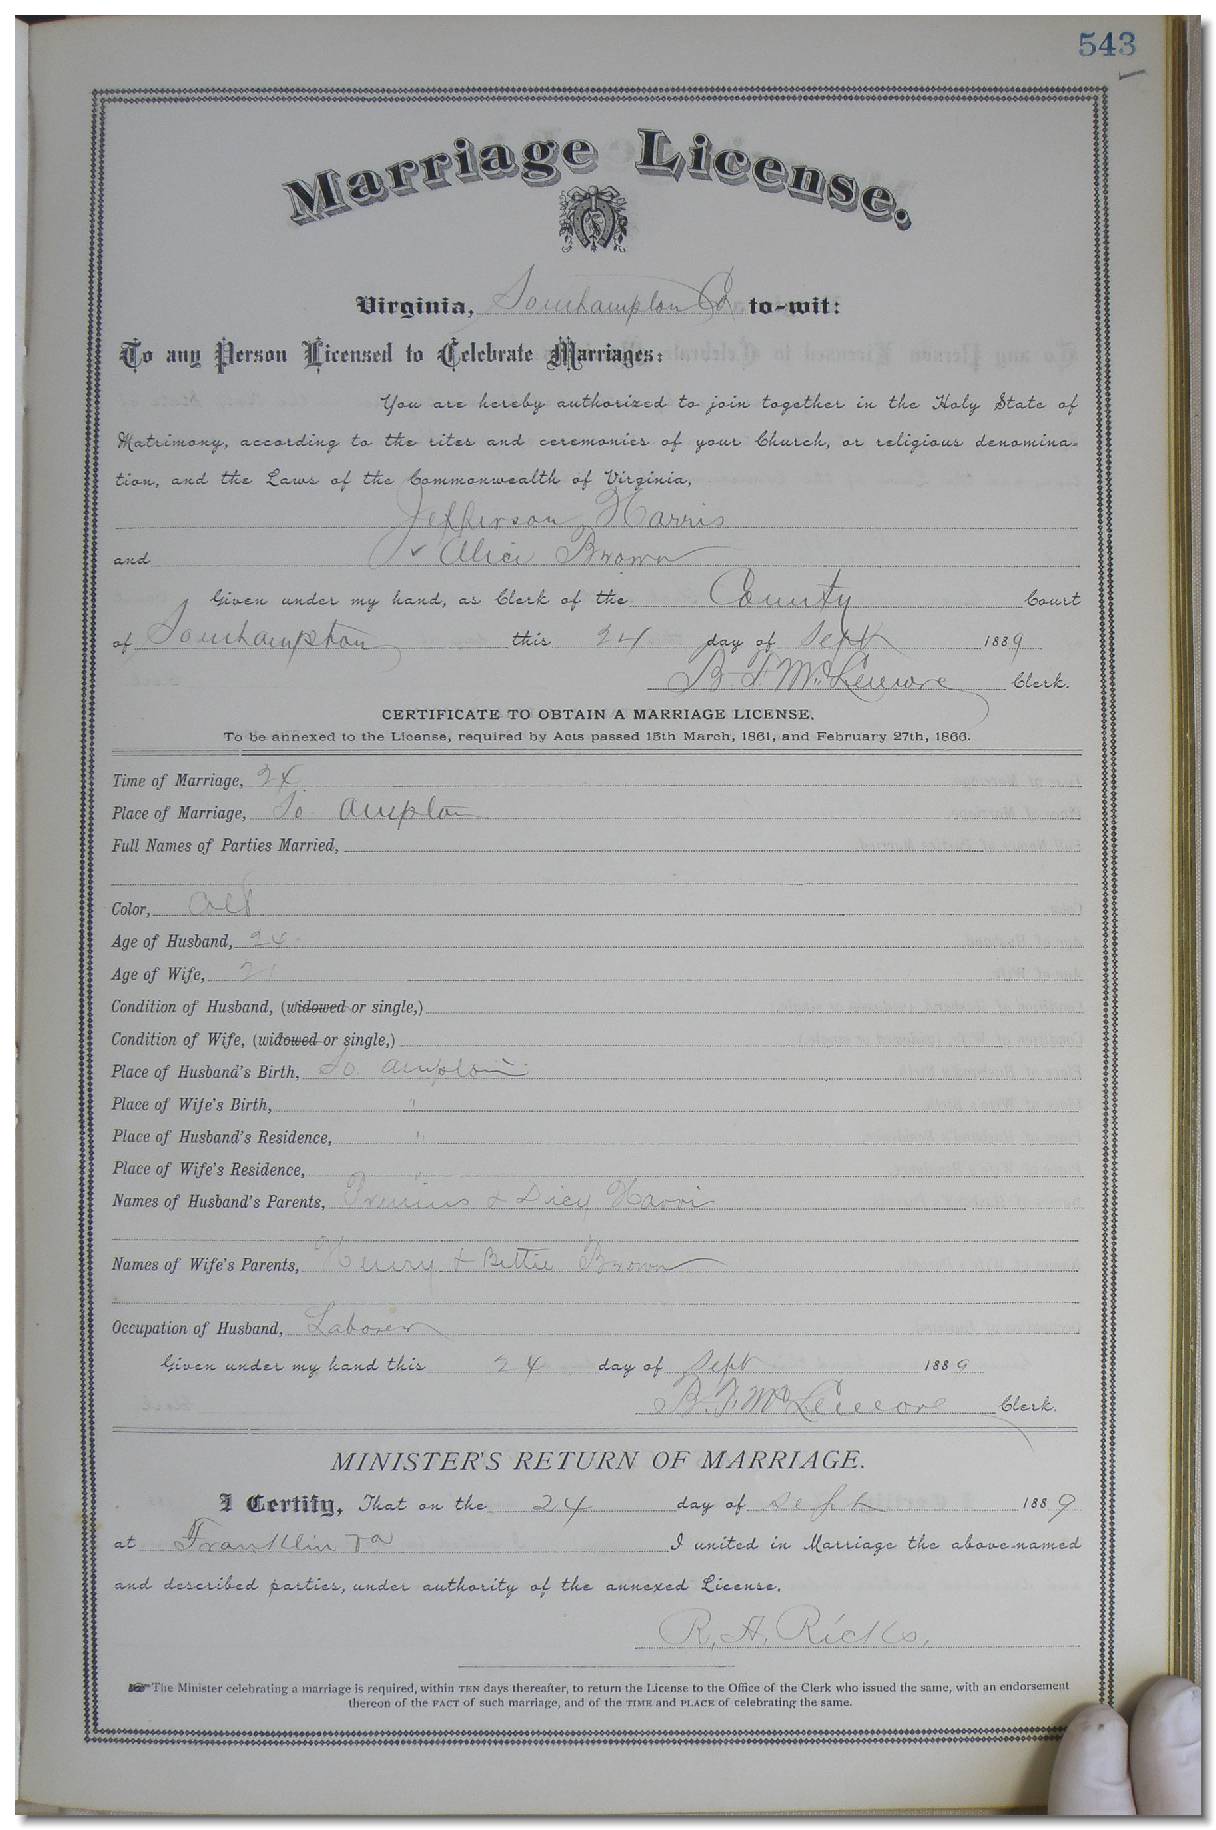 543
Marriage License.
Virginia, Southampton Co to-wit:
To any Person Licensed to Celebrate Marriages:
You are hereby authorized to join together in the Holy State of
Matrimony, according to the rites and ceremonies of your Church, or religious denomina-
tion, and the Laws of the Commonwealth of Virginia,
Jefferson Harris
and Alice Brown
Given under my hand, as Clerk of the County Court
of Southampton this 24 day of Sept 1889
B. F. McLemore Clerk.
CERTIFICATE TO OBTAIN A MARRIAGE LICENSE.
To be annexed to the License, required by Acts passed 15th March, 1861, and February 27th, 1866.
Time of Marriage, 24
Place of Marriage, So. ampton
Full Names of Parties Married,
Color, Cold
Age of Husband, 24
Age of Wife, 21
Condition of Husband, (widowed or single,)
Condition of Wife, (widowed or single,)
Place of Husband's Birth, So. ampton
Place of Wife's Birth, "
Place of Husband's Residence, "
Place of Wife's Residence, "
Names of Husband's Parents, & Dicy Harris
Names of Wife's Parents, Henry & Bettie Brown
Occupation of Husband, Laborer
Given under my hand this 24 day of Sept 1889
B. F. McLemore Clerk.
MINISTER'S RETURN OF MARRIAGE.
I Certify, That on the 24 day of Sept 1889
at Franklin Va I united in Marriage the above-named
and described parties, under authority of the annexed License.
R. H. Ricks.
The Minister celebrating a marriage is required, within TEN days thereafter, to return the License to the Office of the Clerk who issued the same, with an endorsement
thereon of the FACT of such marriage, and of the TIME and PLACE of celebrating the same.